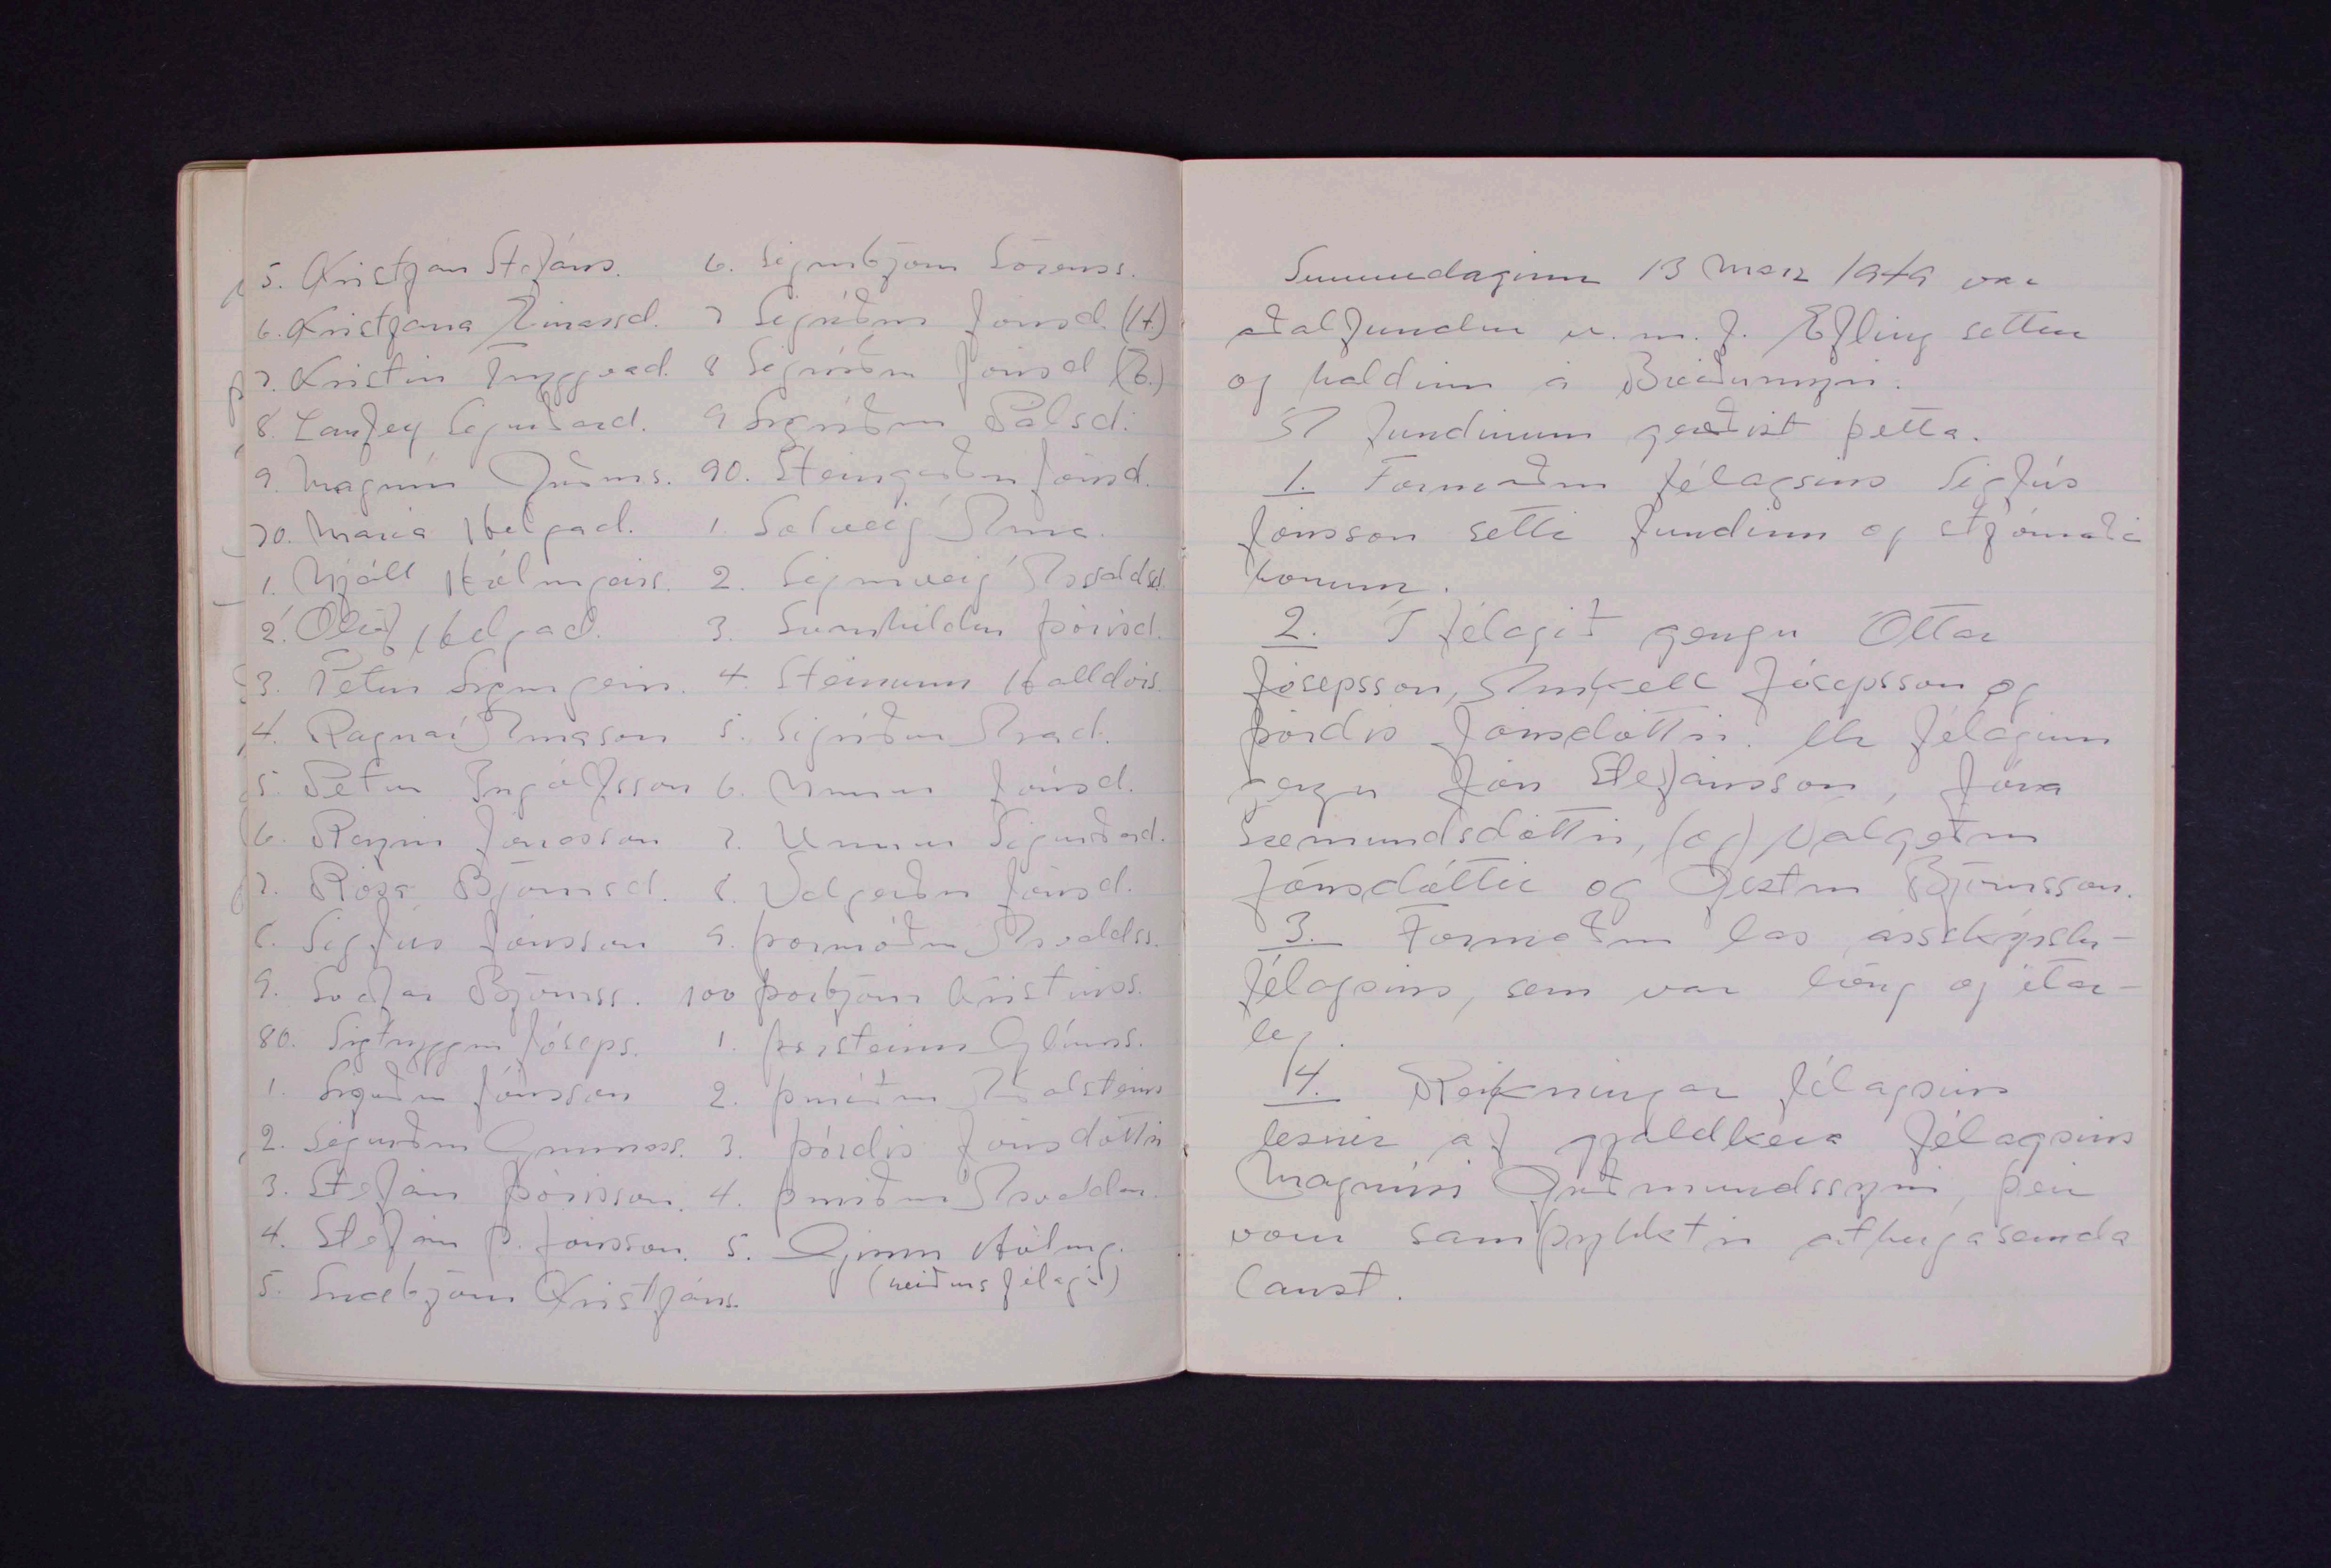 5. Kristján Stefáns.
6. Kristjana Einarsd.
7. Kristín Tryggvad.
8. Laufey Sigurðard.
9. Magnús Guðms.
70. María Helgad.
1. Njáll Hólmgeirs.
2. Ólöf Helgad.
3. Pétur Sigurgeirs.
4. Ragnar Árnason
5. Pétur Ingólfsson
6. Reynir Jónasson
7. Rósa Björnsd.
8. Sigfús Jónsson
9. Svafar Björnss.
80. Sigtryggur Jóseps.
1. Sigurður Jónsson
2. Sigurður Gunnarss.
3. Stefán Þórisson.
4. Stefán Þ. Jónsson.
5. Snæbjörn Kristjáns.
6. Sigurbjörn Sörenss.
7 Sigríður Jónsd. (H.)
8 Sigríður Jónsd (B.)
9 Sigríður Pálsd.
90. Steingerður Jónsd.
1 Solveig Árna.
2. Sigurveig Arvaldsd.
3. Sunnhildur Þórisd.
4. Steinunn Halldórs.
5. Sigríður Arad.
6. Unnur Jónsd.
7. Unnur Sigurðard.
8. Valgerður Jónsd.
9. Þormóður
100 Þorbjörn Kristinss.
1. Þorsteinn Glúms.
2. Þuríður Aðalsteins
3. Þórdís Jónsdóttir
4. Þuríður
5. Hólmg.
(heiðursfélagi)
Sunnudaginn 13 marz 1949 var
aðalfundur u.m.f. Efling settur
og haldinn á Breiðumýri.
Á fundinum gerðist þetta.
1. Formaður félagsins Sigfús
Jónsson setti fundinn og stjórnaði
honum.
2. Í félagið gengu Óttar
Jósepsson, Arnkell Jósepsson og
Þórdís Jónsdóttir. Úr félaginu
gengu Jón Stefánsson, Jóna
Sæmundsdóttir, (og) Valgerður
Jónsdóttir og Gestur Björnsson.
3. Formaður las ársskýrslu-
félagsins, sem var löng og ítar-
leg.
4. Reikningar félagsins
lesnir af gjaldkera félagsins
Magnúsi Guðmundssyni, þeir
voru samþykktir athugasemda
laust.